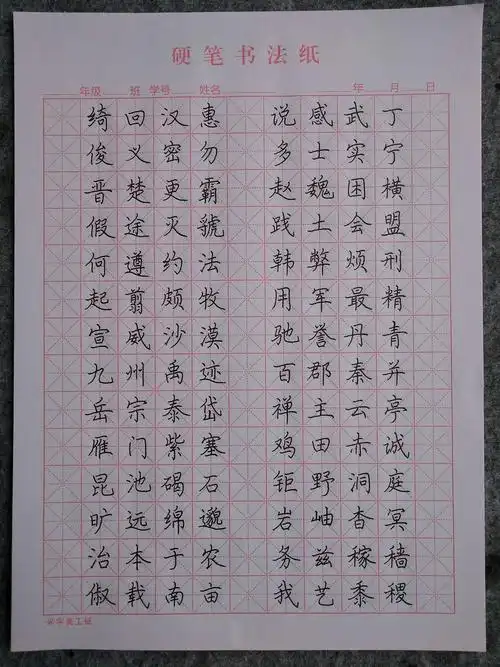 硬笔书法纸
年级 班 学号 姓名 年 月 日
绮回汉惠 说感武丁
俊义密勿 多士实宁
晋楚更霸 赵魏困横
假途灭虢 践土会盟
何遵约法 韩弊烦刑
起翦颇牧 用军最精
宣威沙漠 驰誉丹青
九州禹迹 百郡秦并
岳宗泰岱 禅主云亭
雁门紫塞 鸡田赤诚
昆池碣石 钜野洞庭
旷远绵邈 岩岫杳冥
治本于农 务兹稼穑
俶载南亩 我艺黍稷